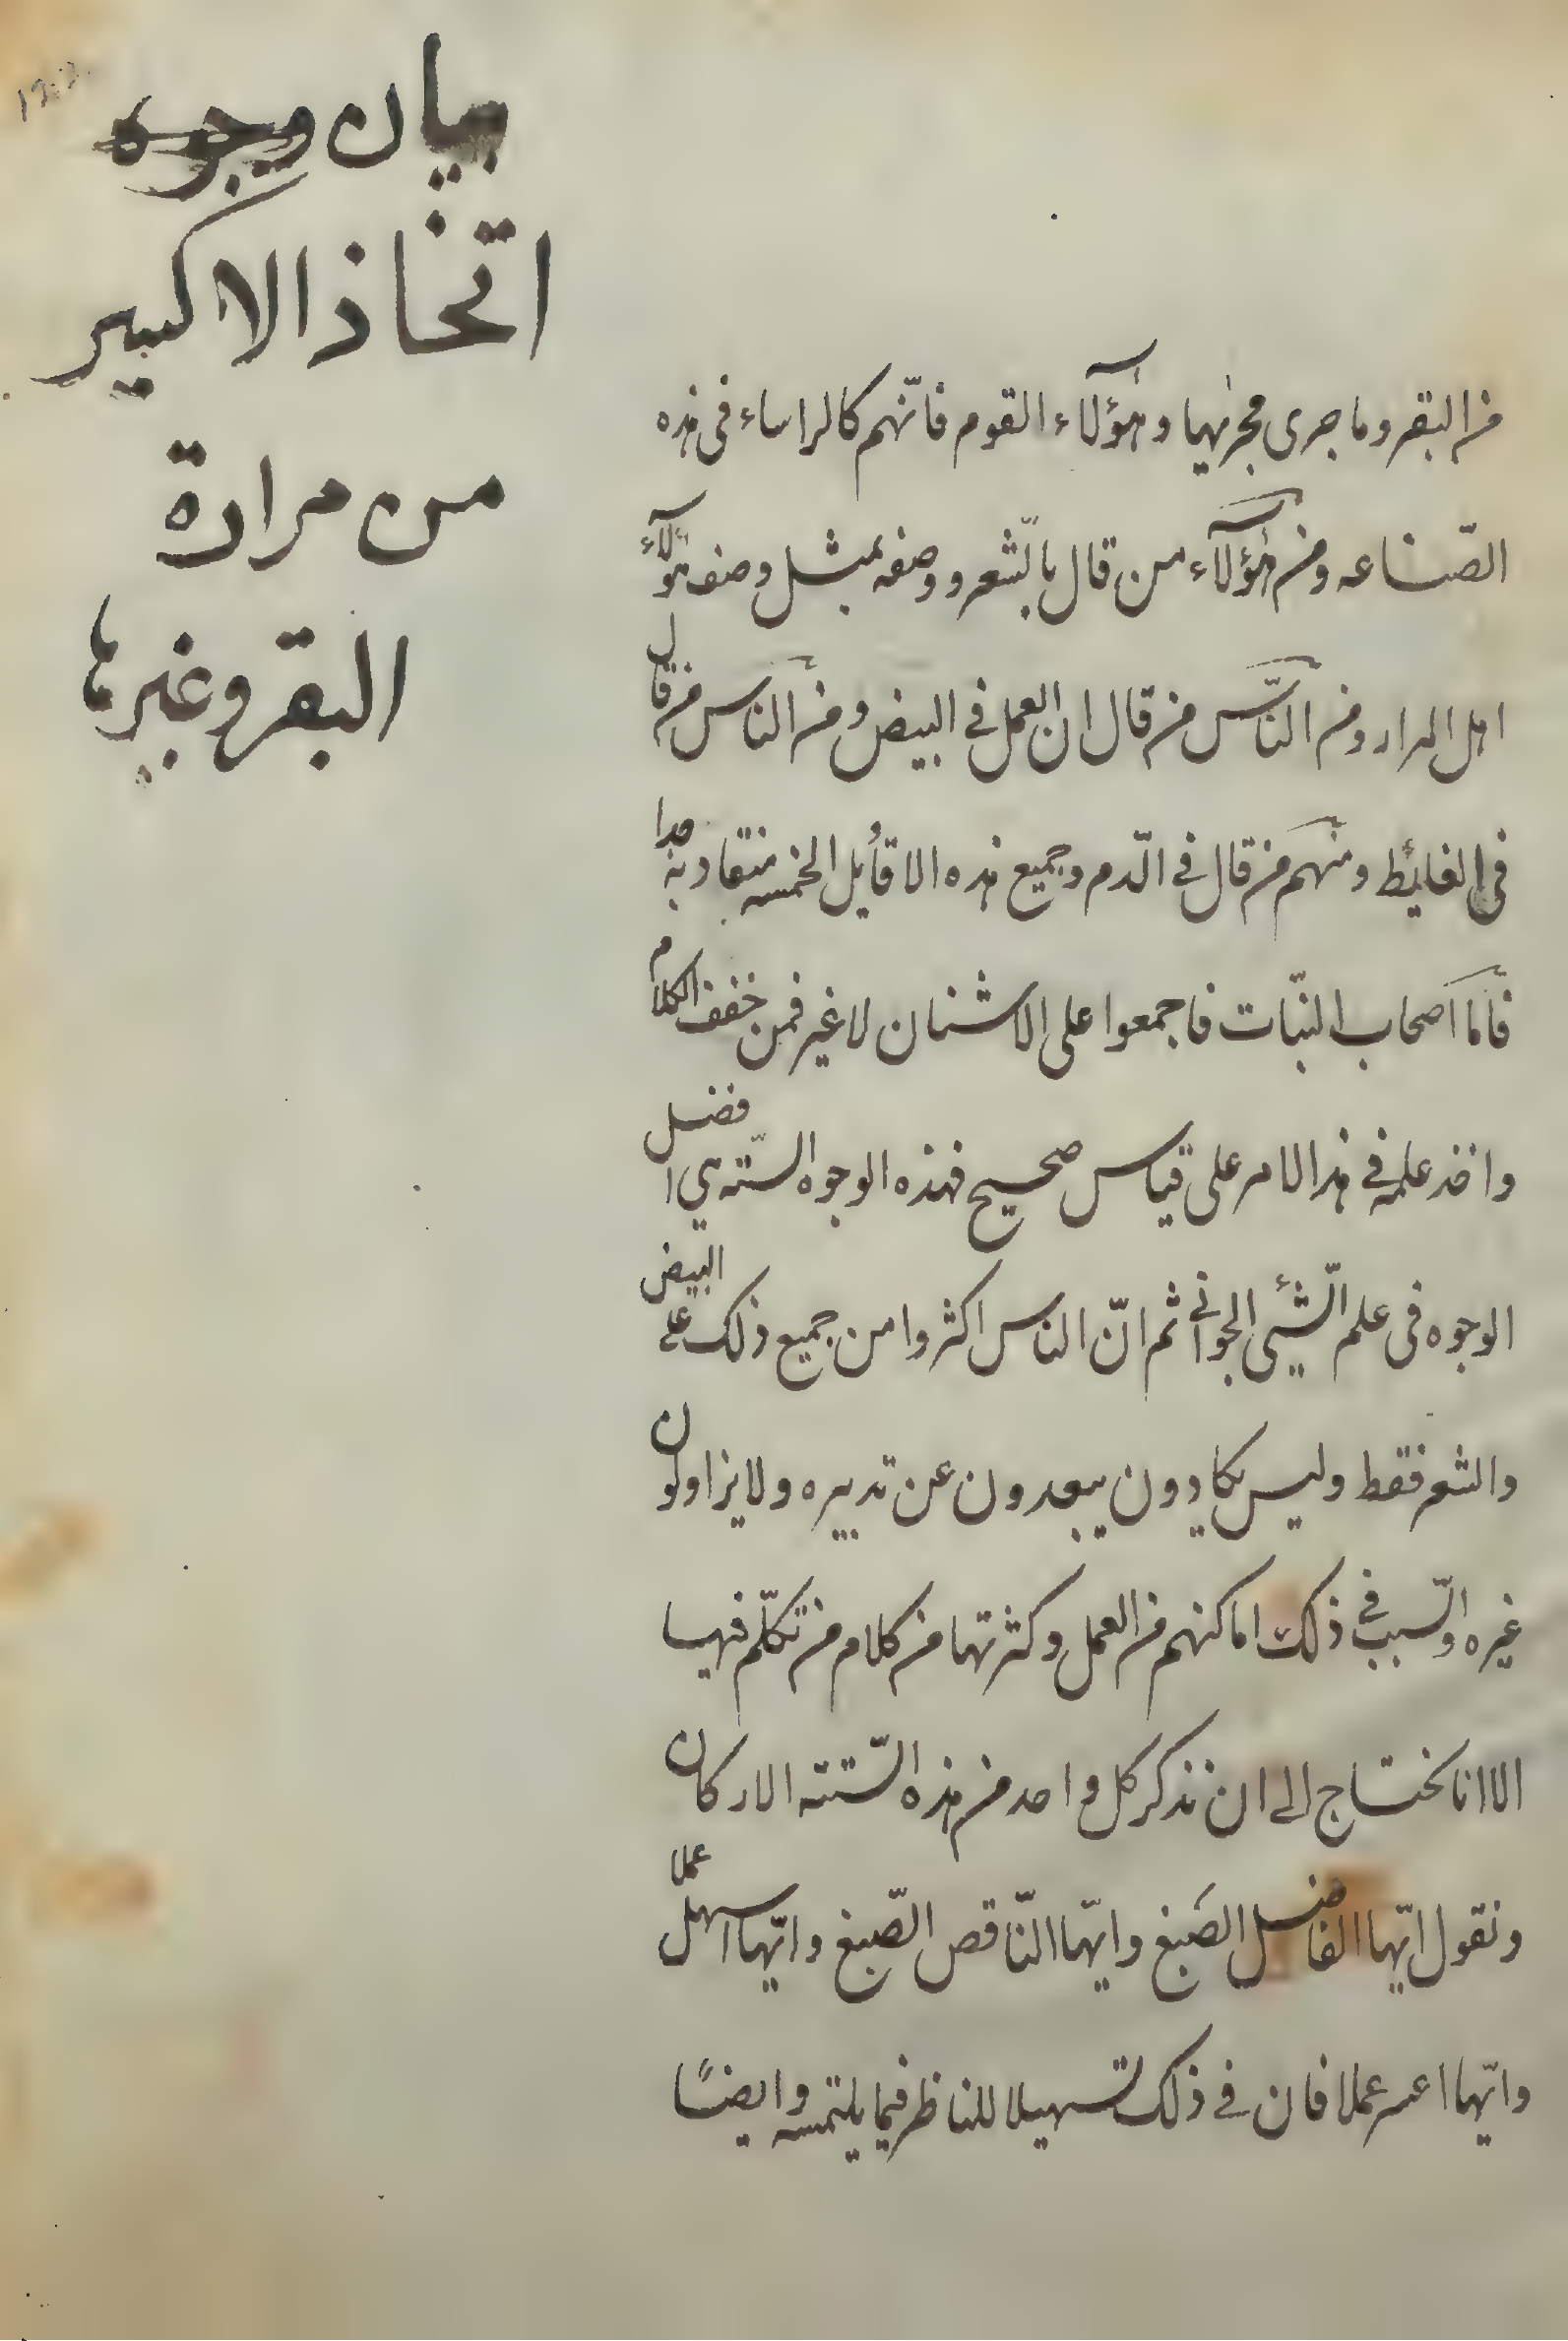 بيان وجوه
اتخاذ الاكسير
من مرارة
البقر وغيرها
من البقر وما جرى مجريهما وهؤلاء القوم فانّهم كالراساء فى هذه
الصّناعه ومن هؤلآء من قال بالشّعر ووصفه بمثل وصف هؤلآء
اهل المرار ومن النّاس من قال ان العمل في البيض ومن الناس من قال
فى الغايئط ومنهم من قال في الدّم وجميع هذه الاقأيل الخمسه متقاربة جدا
فأما اصحاب النبّات فاجمعوا على الاشنان لا غير فمن خفف الكلام
واخذ علمه في هذا الامر على قياس صحيح فهذه الوجوه السّته هي افضل
الوجوه فى علم الشّيئ الجوانى ثم انّ الناس اكثروا من جميع ذلك على البيض
والشعر فقط وليس يكادون يبعدون عن تدبيره ولا يزاولون
غيره والسّبب في ذلك اماكنهم من العمل وكثرتها من كلام من تكلّم فيها
الا انا نحتاج الى ان نذكر كل واحد من هذه السّتته الاركان
ونقول ايّها الفاضل الصّبغ وايّها النّاقص الصّبغ وايّها اسهل عملا
وايّها اعسر عملا فان في ذلك تسهيلا للناظر فيما يلتمسه وايضًا